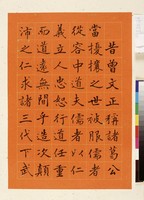 昔曾文正稱諸葛公
當擾攘之世被服儒者
從容中道夫儒者以仁
義立人忠恕行道任重
而道遠無間乎造次顛
沛之仁求諸三代下武